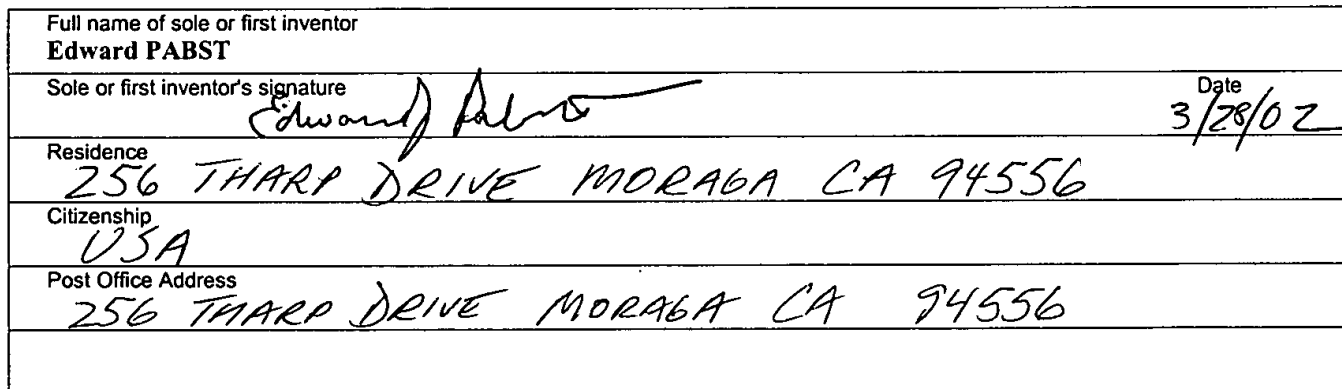 Full name of sole or first inventor
Edward PABST
Sole or first inventor's signature Date
Edward J Pabst 3/28/02
Residence
256 THARP DRIVE MORAGA CA 94556
Citizenship
USA
Post Office Address
256 THARP DRIVE MORAGA CA 94556